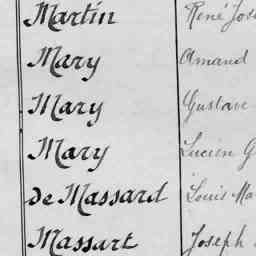 Martin René Jose
Mary Amand
Mary Gustave
Mary Lucien G
de Massard Louis Ma
Massart Joseph